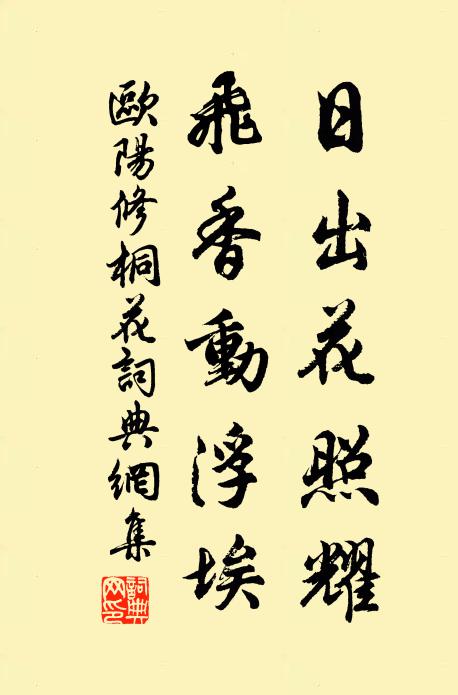 日出花照耀
飛香動浮埃
歐陽修桐花詞典網集
詞典網印